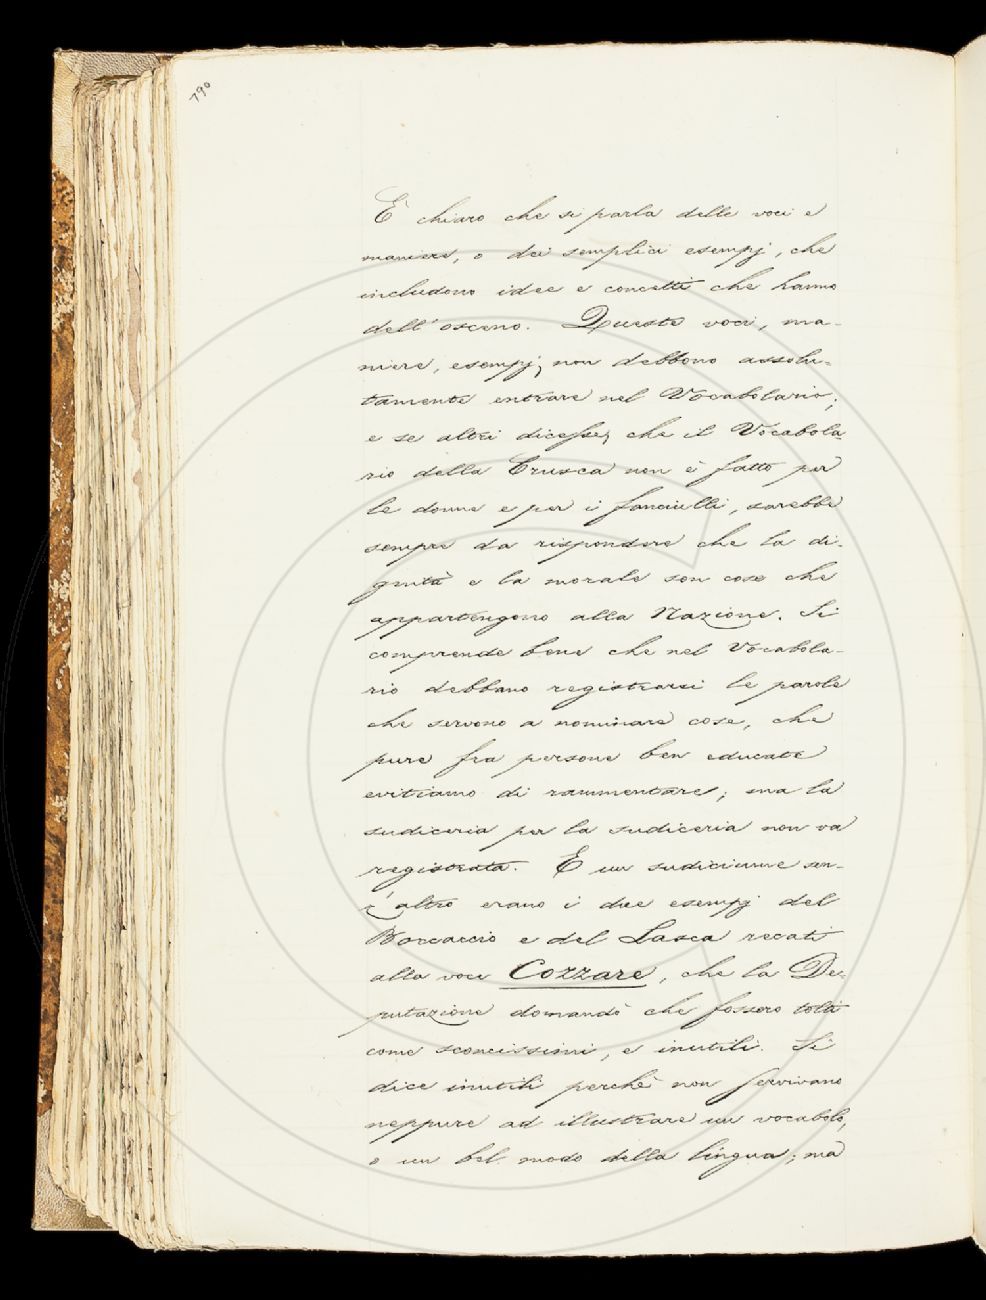 790
È chiaro che si parla delle voci e
maniere, o dei semplici esempj, che
includono idee e concetti che hanno
dell'osceno. Queste voci, ma-
niere, esempj, non debbono assolu-
tamente entrare nel Vocabolario;
e se altri dicesse, che il Vocabola
rio della Crusca non è fatto per
le donne e per i fanciulli, sarebbe
sempre da rispondere che la di-
gnità e la morale son cose che
appartengono alla Nazione. Si
comprende bene che nel Vocabola-
rio debbano registrarsi le parole
che servono a nominare cose, che
pure fra persone ben educate
evitiamo di rammentare; ma la
sudiceria per la sudiceria non va
registrata. E un sudiciume sen-
z'altro erano i due esempj del
Boccaccio e del Lasca recati
alla voce Cozzare, che la De-
putazione domandò che fossero tolti
come sconcissimi, e inutili. Si
dice inutili perchè non servivano
neppure ad illustrare un vocabolo,
o un bel modo della lingua; ma